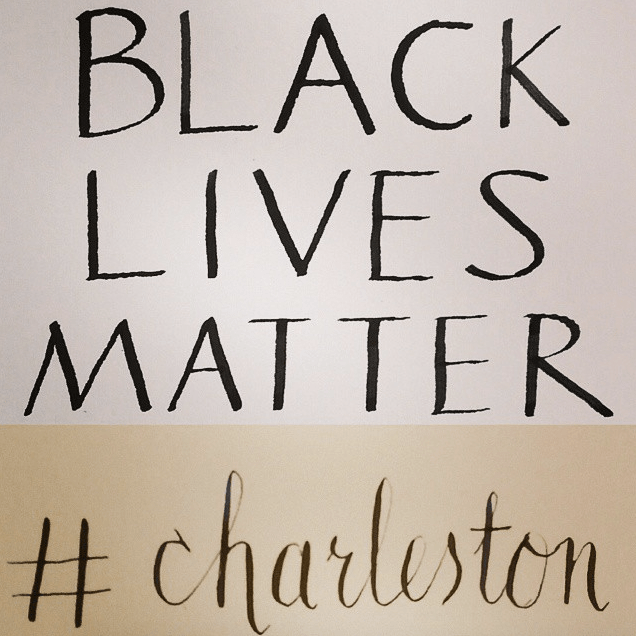 BLACK
LIVES
MATTER
# charleston